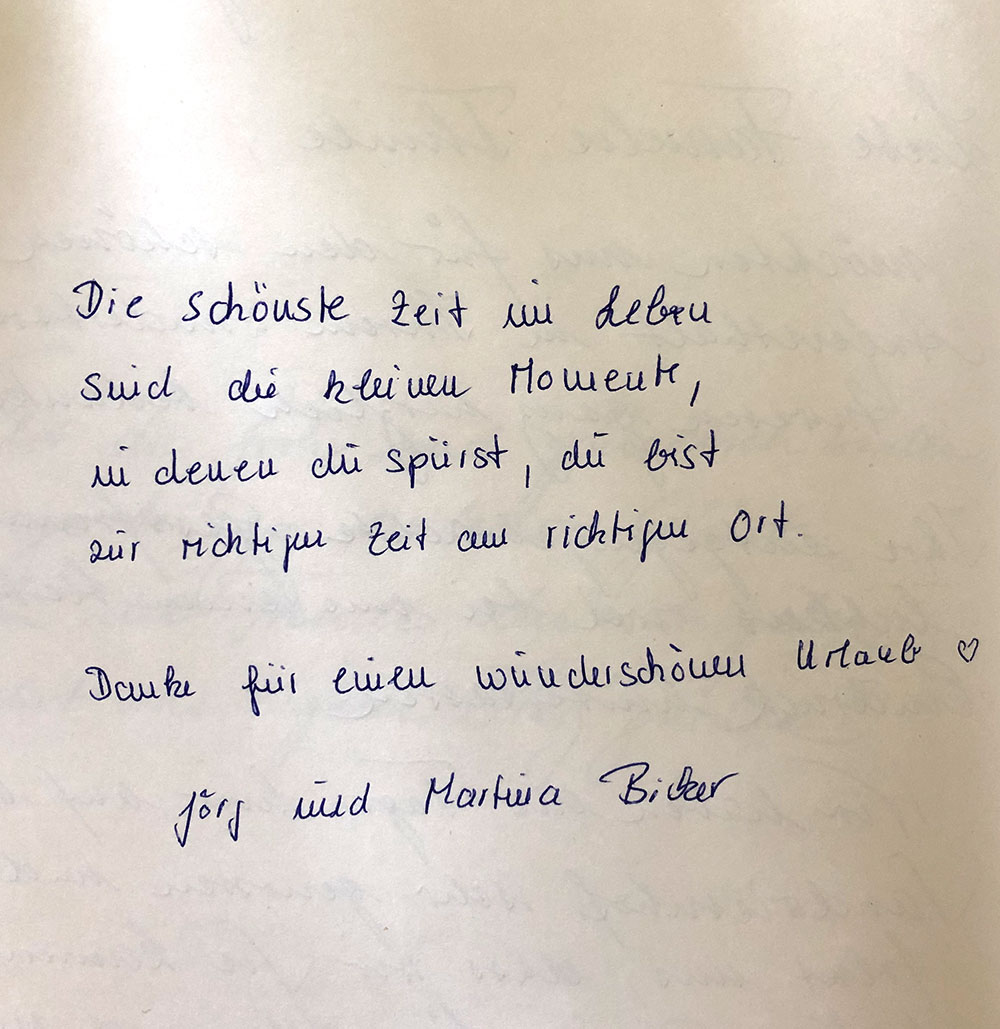 Die schönste Zeit im Leben
sind die kleinen Momente,
in denen du spürst, du bist
zur richtigen Zeit am richtigen Ort.
Danke für einen wunderschönen Urlaub ♡
Jörg und Martina Bicker